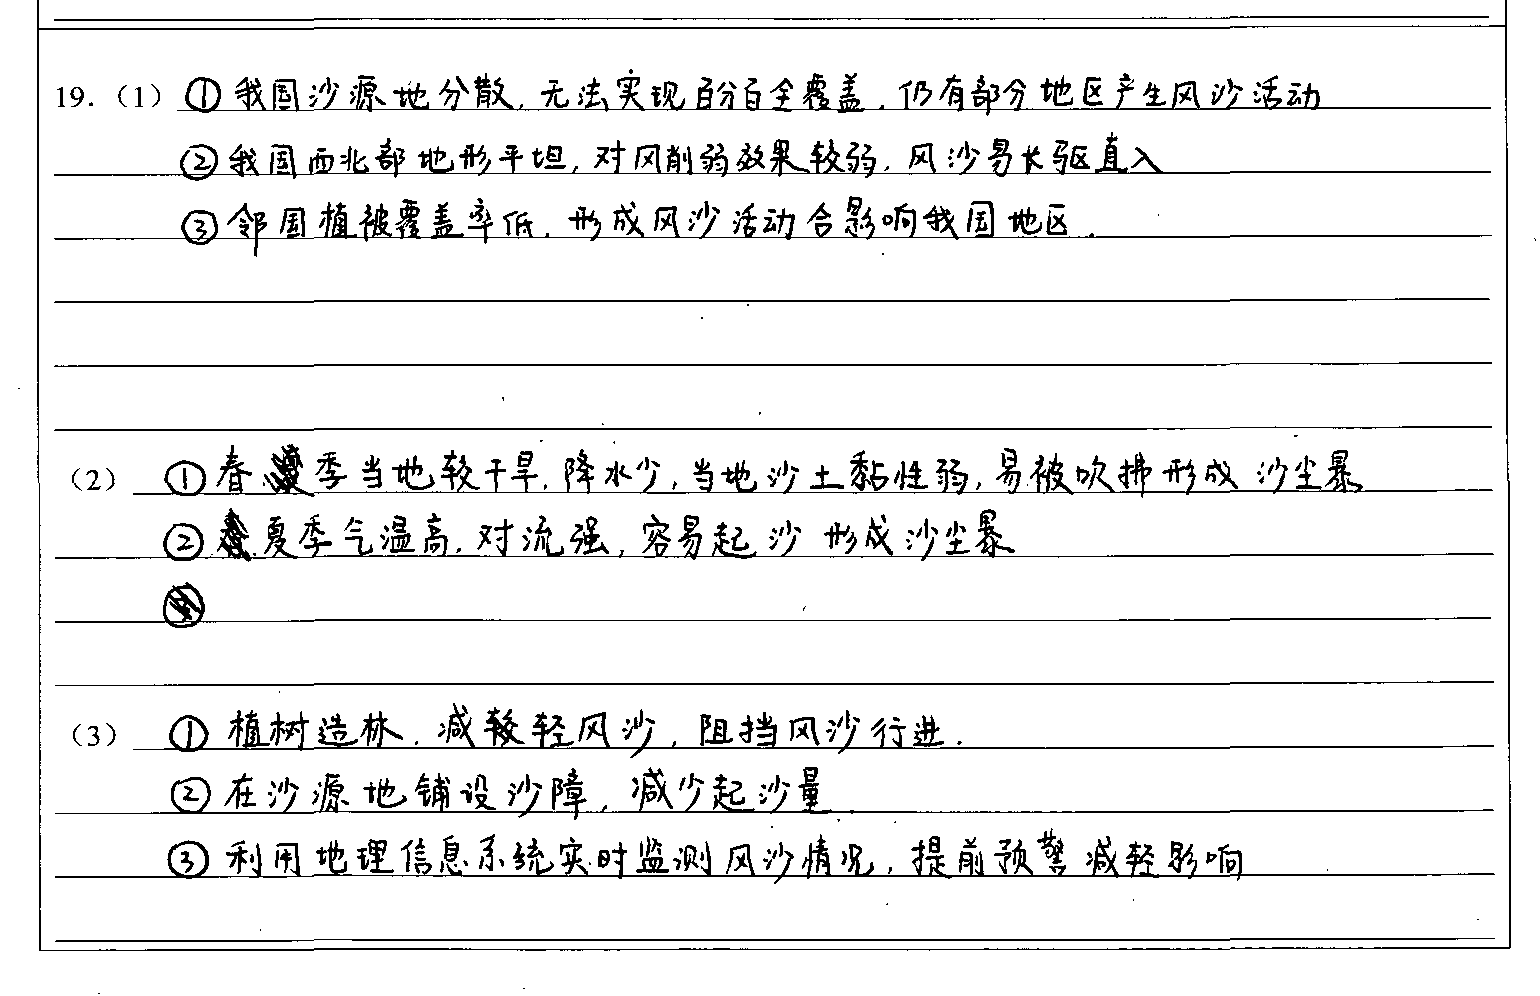 19.（1）①我国沙源地分散，无法实现百分百全覆盖，仍有部分地区产生风沙活动
②我国西北部地形平坦，对风削弱效果较弱，风沙易长驱直入
③邻国植被覆盖率低，形成风沙活动会影响我国地区．
（2）①春季当地较干旱，降水少，当地沙土黏性弱，易被吹拂形成沙尘暴
②夏季气温高，对流强，容易起沙形成沙尘暴
（3）①植树造林，减轻风沙，阻挡风沙行进．
②在沙源地铺设沙障，减少起沙量
③利用地理信息系统实时监测风沙情况，提前预警减轻影响